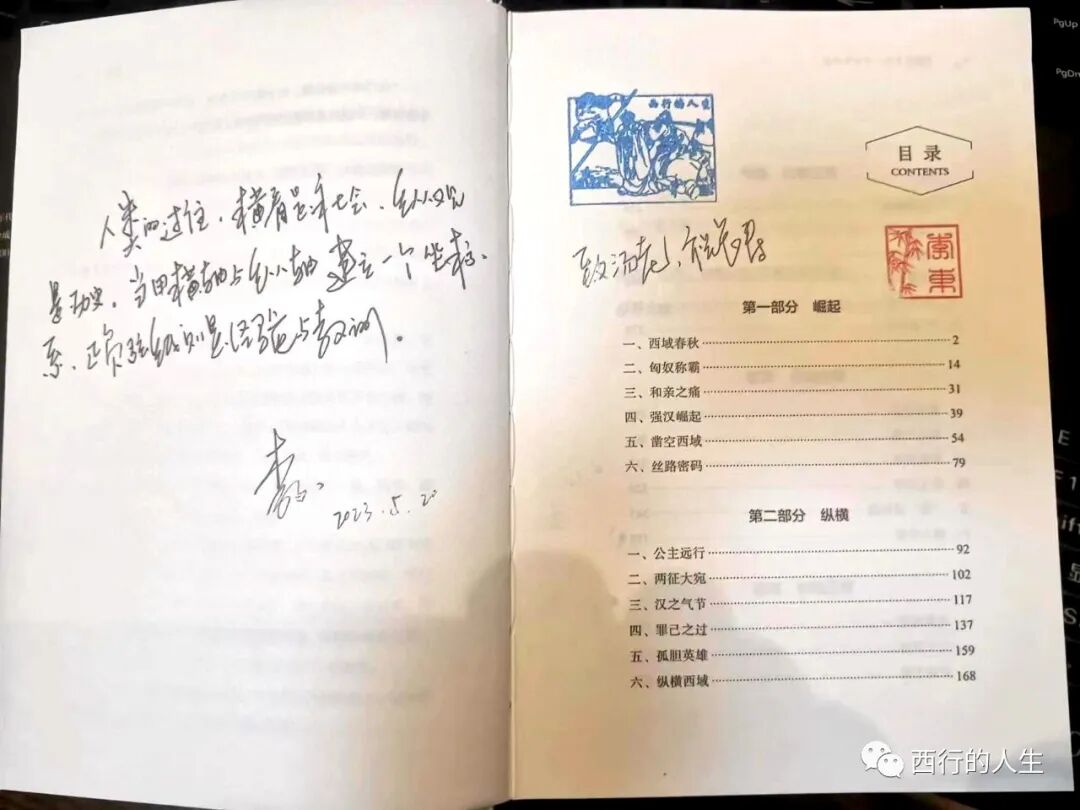 人类的过往，横看是社会、纵观
是历史，当用横轴与纵轴建立一个坐标
系，正负弦线则是经验与教训。
2023.5.20
西行的人生
目录
CONTENTS
李东
第一部分 崛起
一、西域春秋 2
二、匈奴称霸 14
三、和亲之痛 31
四、强汉崛起 39
五、凿空西域 54
六、丝路密码 79
第二部分 纵横
一、公主远行 92
二、两征大宛 102
三、汉之气节 117
四、罪己之过 137
五、孤胆英雄 159
六、纵横西域 168
PgUp
PgDn
西行的人生